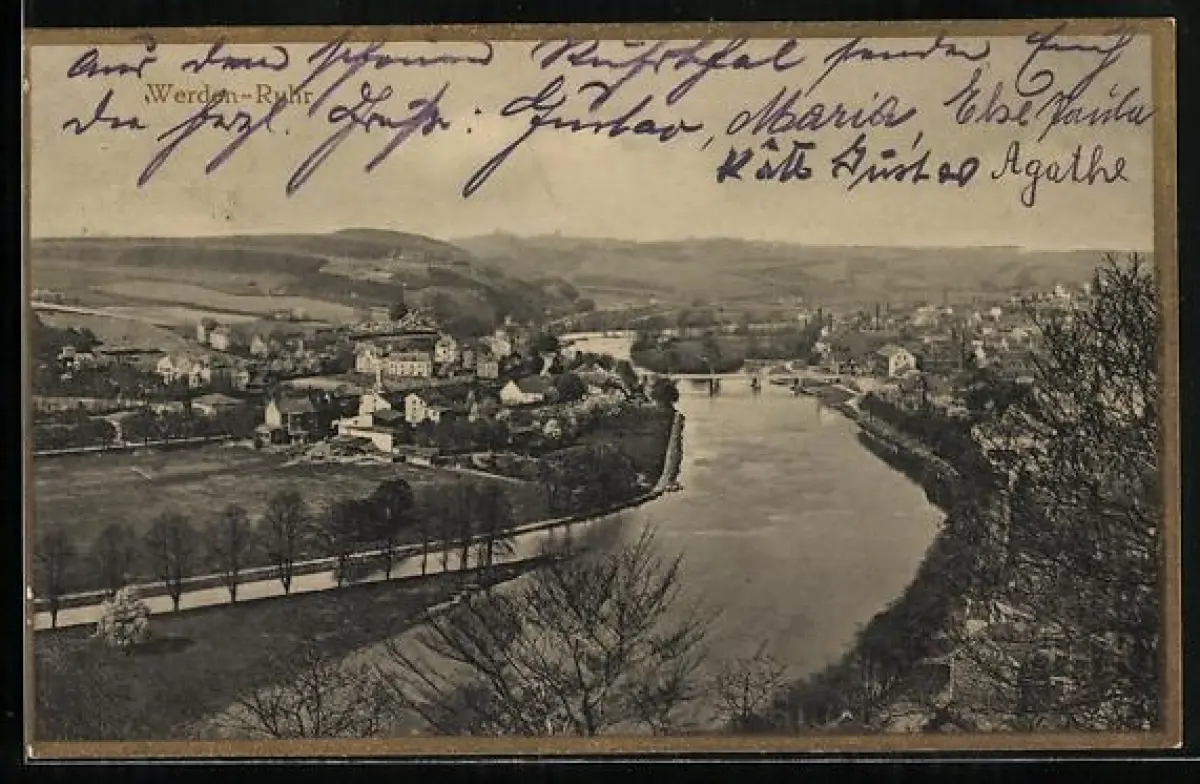 Aus dem schönen Ruhrthal senden Euch
Werden-Ruhr
die herzl. Grüße: Gustav, Maria, Else Paula
Käte Gustav Agathe